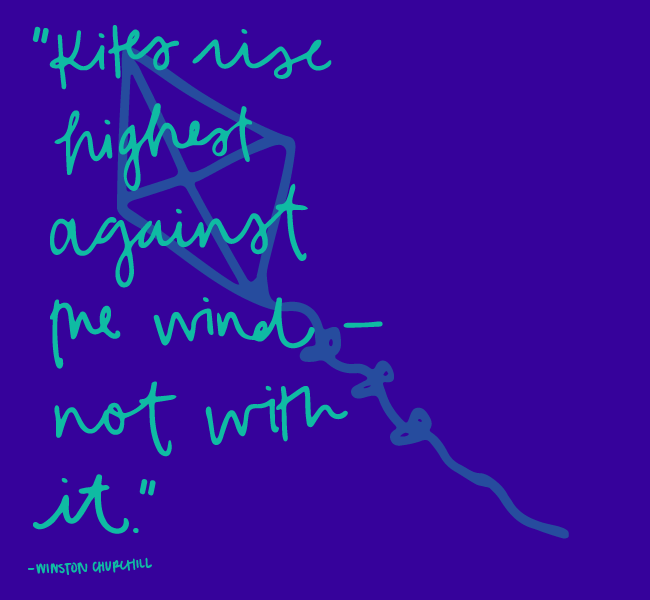 "Kites rise
highest
against
the wind –
not with
it."
-WINSTON CHURCHILL